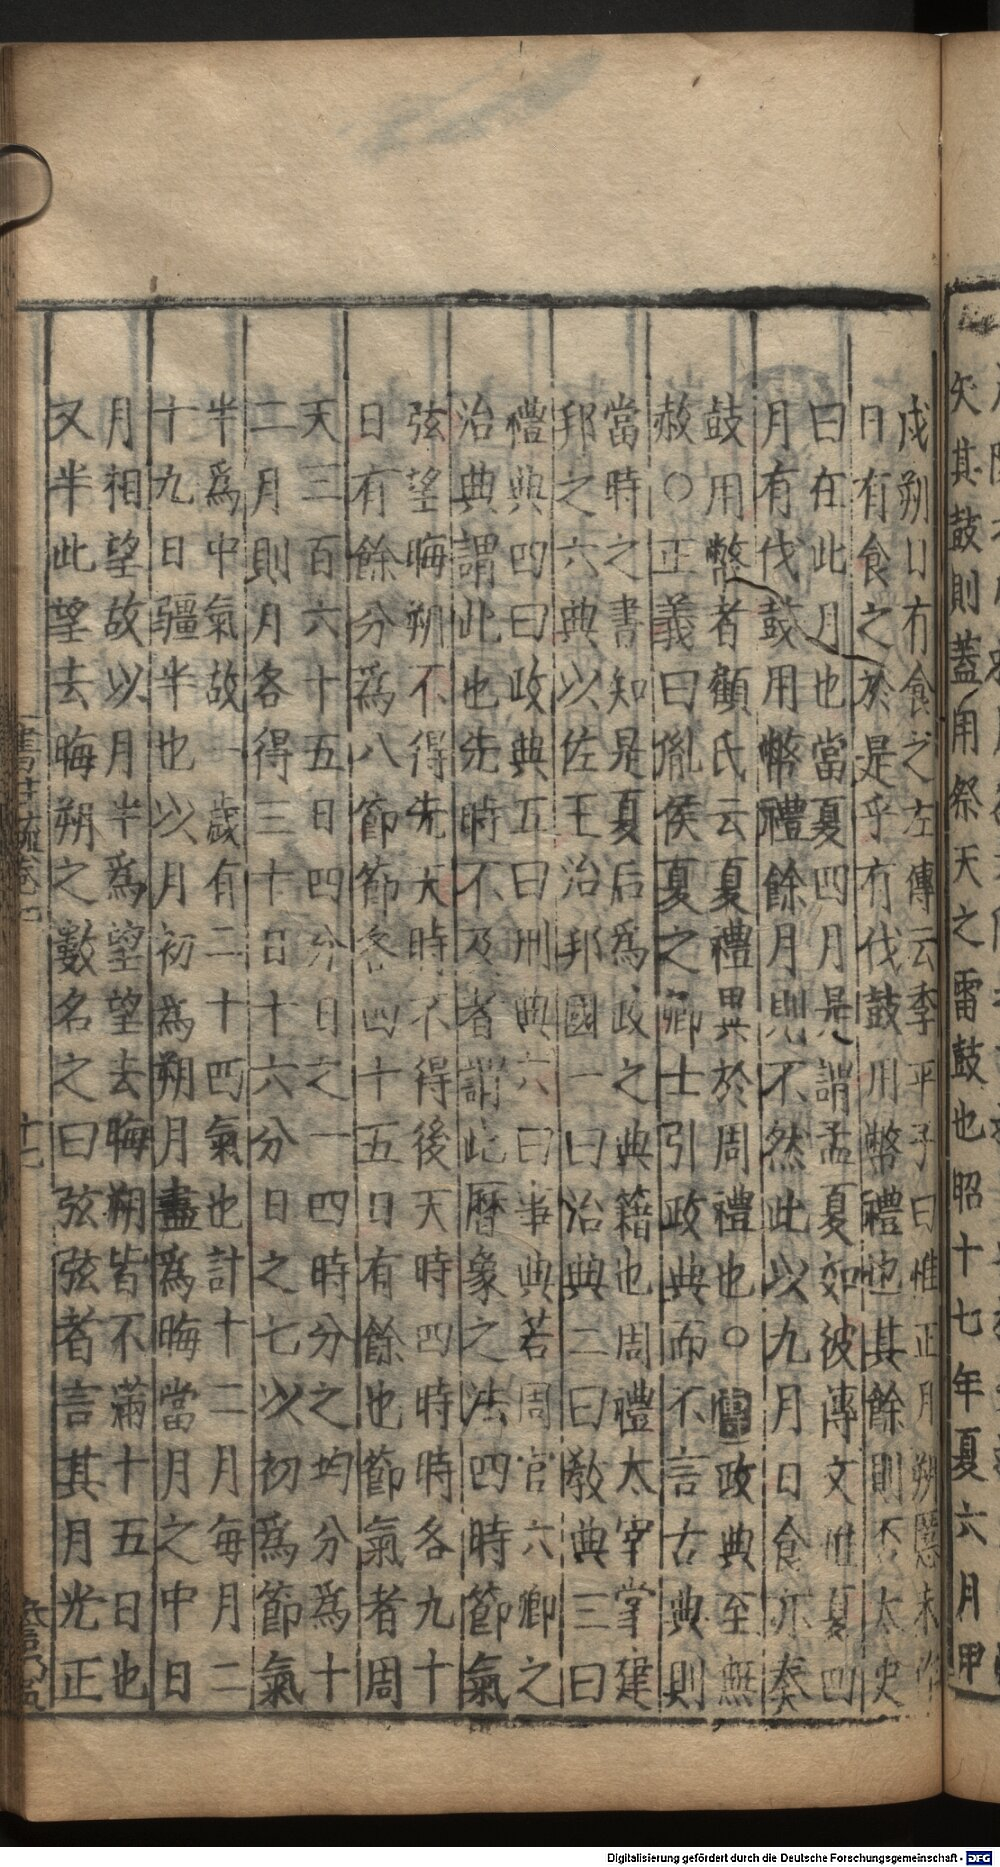 矢其鼓則蓋用祭天之雷鼓也昭十七年夏六月甲
戌朔日有食之左傳云季平子曰惟正月朔慝未作
日有食之於是乎有伐鼓用幣禮也其餘則不太史
曰在此月也當夏四月是謂孟夏如彼傳文惟夏四
月有伐鼓用幣禮餘月則不然此以九月日食亦奏
鼓用幣者顧氏云夏禮異於周禮也○政典至無
赦○正義曰胤侯夏之卿士引政典而不言古典則
當時之書知是夏后為政之典籍也周禮太宰掌建
邦之六典以佐王治邦國一曰治典二曰教典三曰
禮典四曰政典五曰刑典六曰事典若周官六卿之
治典謂此也先時不及者謂此曆象之法四時節氣
弦望晦朔不得先天時不得後天時四時時各九十
日有餘分為八節節各四十五日有餘也節氣者周
天三百六十五日四分日之一四時分之均分為十
二月則月各得三十日十六分日之七以初為節氣
半為中氣故一歲有二十四氣也計十二月每月二
十九日彊半也以月初為朔月盡為晦當月之中日
月相望故以月半為望望去晦朔皆不滿十五日也
又半此望去晦朔之數名之曰弦弦者言其月光正
書註疏卷七
十七
Digitalisierung gefördert durch die Deutsche Forschungsgemeinschaft - DFG